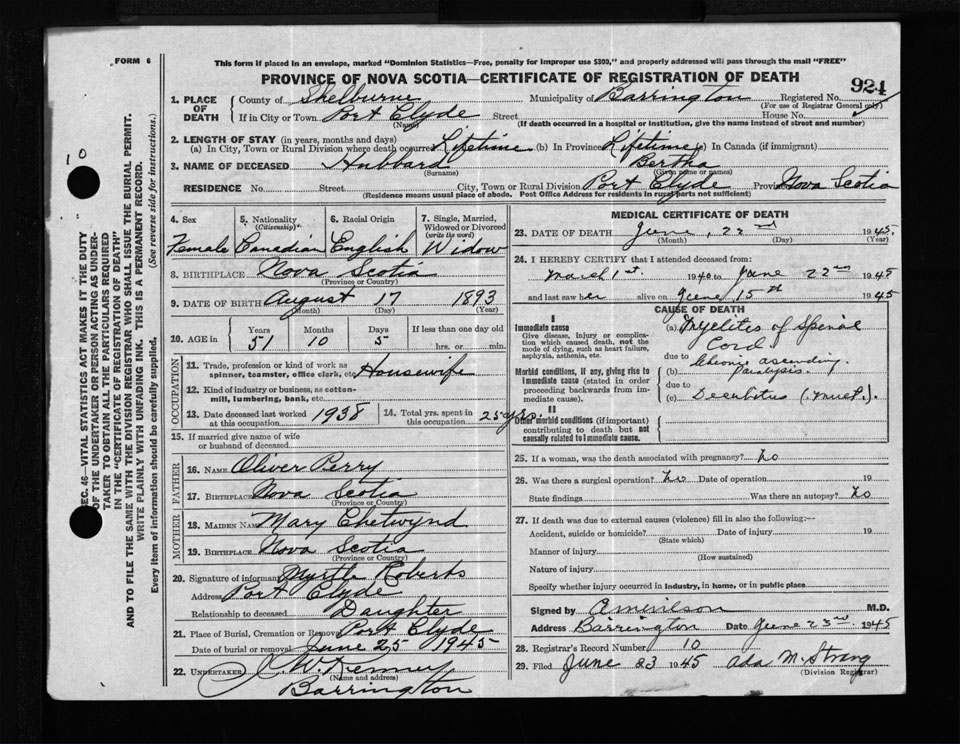 FORM 6
This form if placed in an envelope, marked "Dominion Statistics—Free, penalty for improper use $300," and properly addressed will pass through the mail "FREE"
PROVINCE OF NOVA SCOTIA—CERTIFICATE OF REGISTRATION OF DEATH
924
1. PLACE OF DEATH County of Shelburne Municipality of Barrington Registered No.
(For use of Registrar General only)
If in City or Town Port Clyde Street House No.
(Name) (If death occurred in a hospital or institution, give the name instead of street and number)
2. LENGTH OF STAY (in years, months and days)
(a) In City, Town or Rural Division where death occurred Lifetime (b) In Province Lifetime (c) In Canada (if immigrant)
3. NAME OF DECEASED Hubbard Bertha
(Surname) (Given name or names)
RESIDENCE No. Street City, Town or Rural Division Port Clyde Province Nova Scotia
(Residence means usual place of abode. Post Office Address for residents in rural parts not sufficient)
4. Sex Female
5. Nationality (Citizenship) Canadian
6. Racial Origin English
7. Single, Married, Widowed or Divorced (write the word) Widow
8. BIRTHPLACE Nova Scotia
(Province or Country)
9. DATE OF BIRTH August 17 1893
(Month) (Day) (Year)
10. AGE in Years Months Days If less than one day old
51 10 5 hrs. or min.
OCCUPATION
11. Trade, profession or kind of work as spinner, teamster, office clerk, etc. Housewife
12. Kind of industry or business, as cotton-mill, lumbering, bank, etc.
13. Date deceased last worked at this occupation 1938
14. Total yrs. spent in this occupation 25 yrs.
15. If married give name of wife or husband of deceased
FATHER
16. NAME Oliver Perry
17. Birthplace Nova Scotia
(Province or Country)
MOTHER
18. MAIDEN NAME Mary Chetwynd
19. BIRTHPLACE Nova Scotia
(Province or Country)
20. Signature of informant Myrtle Roberts
Address Port Clyde
Relationship to deceased Daughter
21. Place of Burial, Cremation or Removal Port Clyde
Date of burial or removal June 25 1945
22. UNDERTAKER
(Name and address)
Barrington
MEDICAL CERTIFICATE OF DEATH
23. DATE OF DEATH June, 22nd 1945.
(Month) (Day) (Year)
24. I HEREBY CERTIFY that I attended deceased from:
March 1st. 1940 to June 22nd 1945
and last saw her alive on June 15th 1945
CAUSE OF DEATH
I
Immediate cause
Give disease, injury or complication which caused death, not the mode of dying, such as heart failure, asphyxia, asthenia, etc.
(a) Myelites of Spenial Cord
due to
Morbid conditions, if any, giving rise to immediate cause (stated in order proceeding backwards from immediate cause).
(b) Chronic ascending Paralysis.
due to
(c) Decubitus
II
Other morbid conditions (if important) contributing to death but not causally related to immediate cause.
25. If a woman, was the death associated with pregnancy? No
26. Was there a surgical operation? No Date of operation 19
State findings Was there an autopsy? No
27. If death was due to external causes (violence) fill in also the following:—
Accident, suicide or homicide? Date of injury 19
(State which)
Manner of injury
(How sustained)
Nature of injury
Specify whether injury occurred in industry, in home, or in public place
Signed by M.D.
Address Barrington Date June 23rd 1945
28. Registrar's Record Number 10
29. Filed June 23 1945 Ada M. Strang
(Division Registrar)
10
SEC. 46—VITAL STATISTICS ACT MAKES IT THE DUTY
OF THE UNDERTAKER OR PERSON ACTING AS UNDER-
TAKER TO OBTAIN ALL THE PARTICULARS REQUIRED
IN THE "CERTIFICATE OF REGISTRATION OF DEATH"
AND TO FILE THE SAME WITH THE DIVISION REGISTRAR WHO SHALL ISSUE THE BURIAL PERMIT.
WRITE PLAINLY WITH UNFADING INK. THIS IS A PERMANENT RECORD.
Every item of information should be carefully supplied. (See reverse side for instructions.)